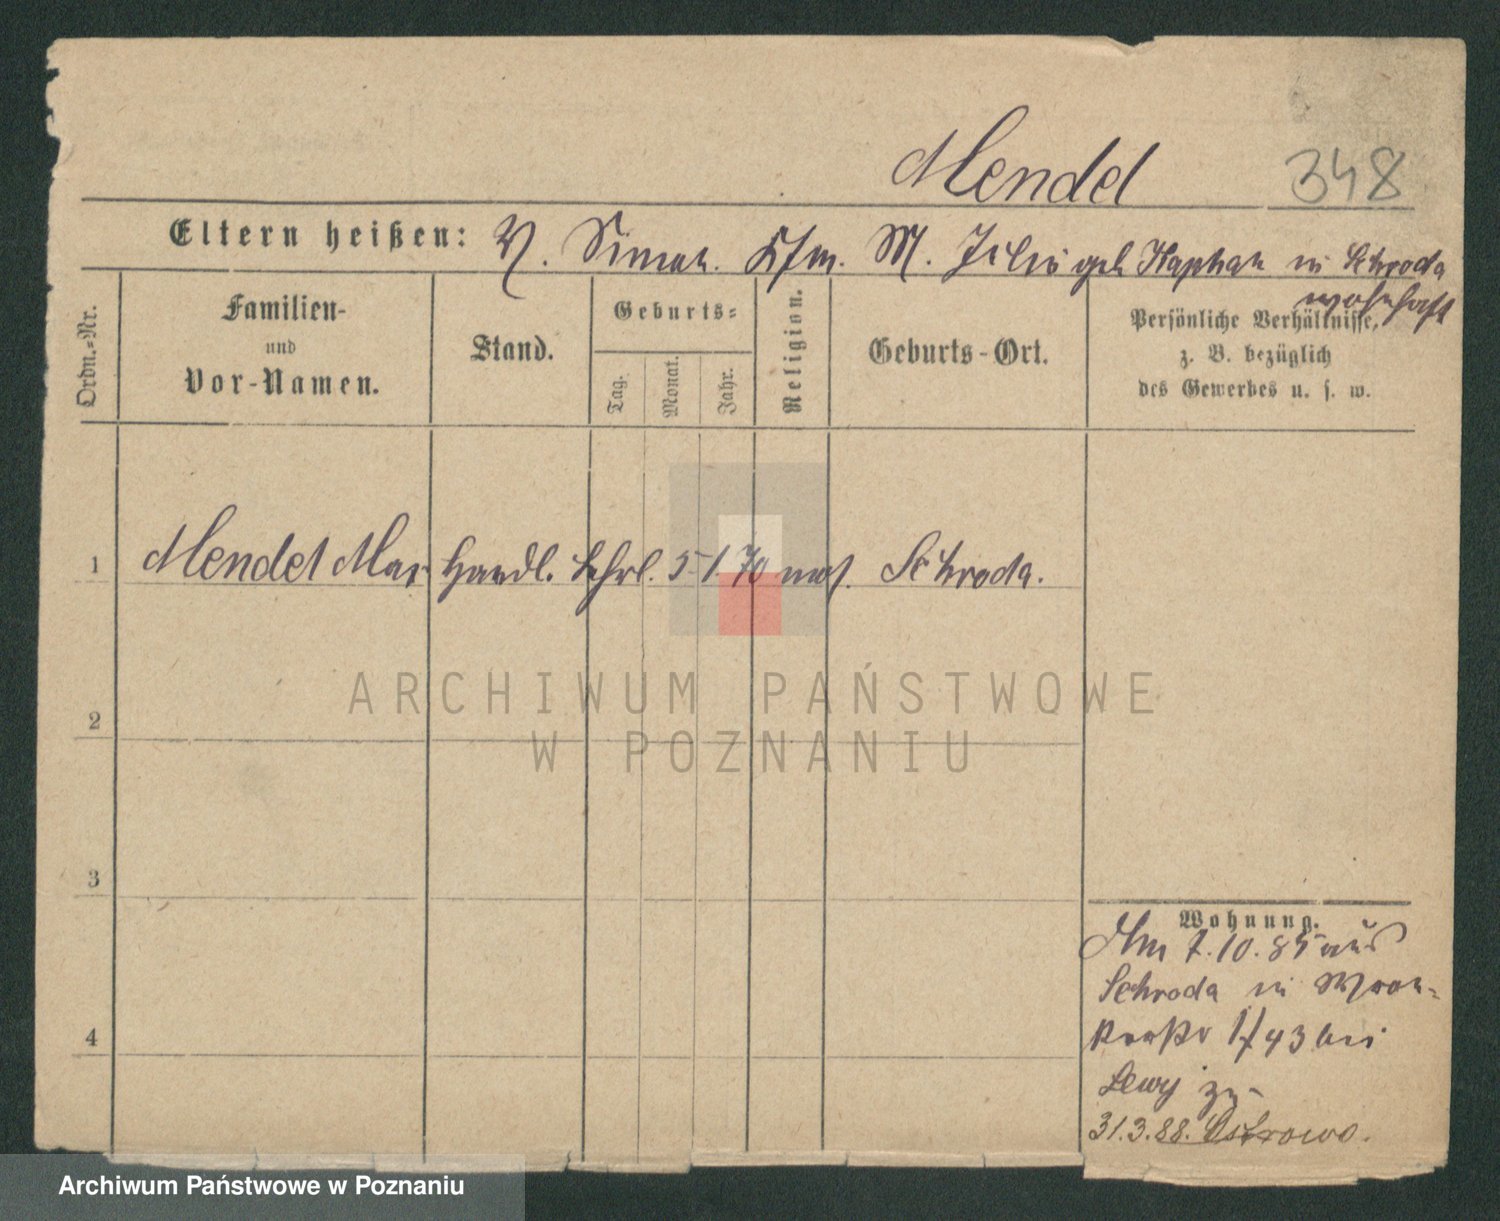 Mendel 348
Eltern heißen: V. Simon. Kfm. M. geb. Kaphan in Schroda
wohnhaft
Ordn.-Nr.
Familien-
und
Vor-Namen.
Stand.
Geburts-
Tag.
Monat.
Jahr.
Religion.
Geburts-Ort.
Persönliche Verhältnisse,
z. B. bezüglich
des Gewerbes u. s. w.
1 Mendel Max Handl. Lehrl. 5 1. 70 mos. Schroda.
2
3
4
Wohnung.
Am 7.10.85 aus
Schroda in Wron-
kerstr 43 bei
Lewy zu-
31.3.88. Ostrowo.
ARCHIWUM PAŃSTWOWE
W POZNANIU
Archiwum Państwowe w Poznaniu